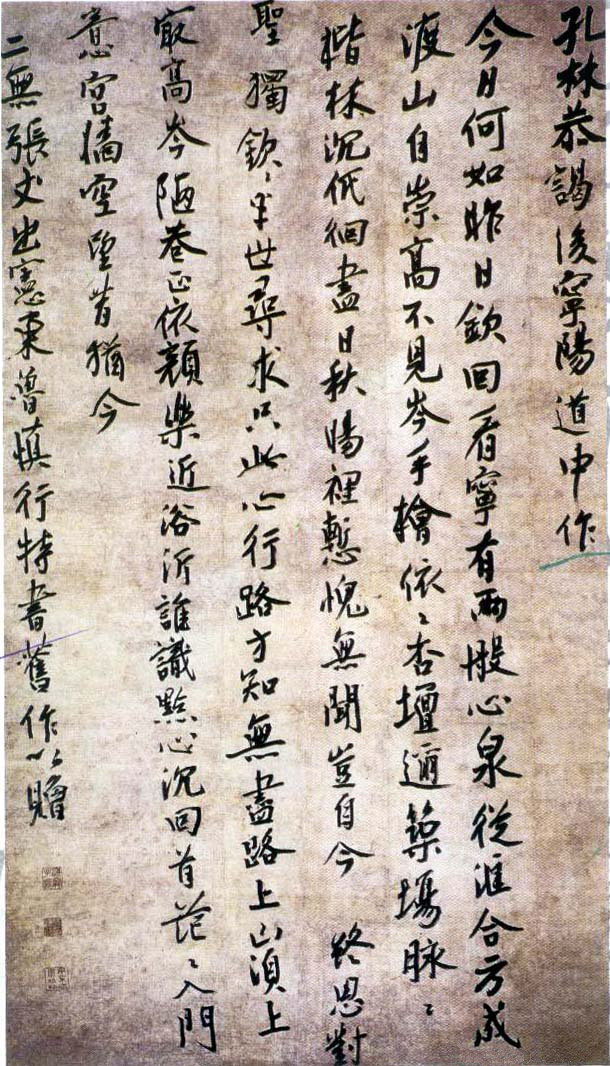 孔林恭謁後寧陽道中作
今日何如昨日欽回看寧有兩般心泉從滙合方成
渡山自崇高不見岑手檜依〻杏壇邇築場脉〻
楷林沉低徊盡日秋陽裡慙愧無聞豈自今 終思對
聖獨欽〻半世尋求只此心行路方知無盡路上山須上
最高岑陋巷正依顏樂近浴沂誰識點心沉回首茫〻入門
意宮墻空望昔猶今
二無張丈出憲東魯慎行特書舊作以贈